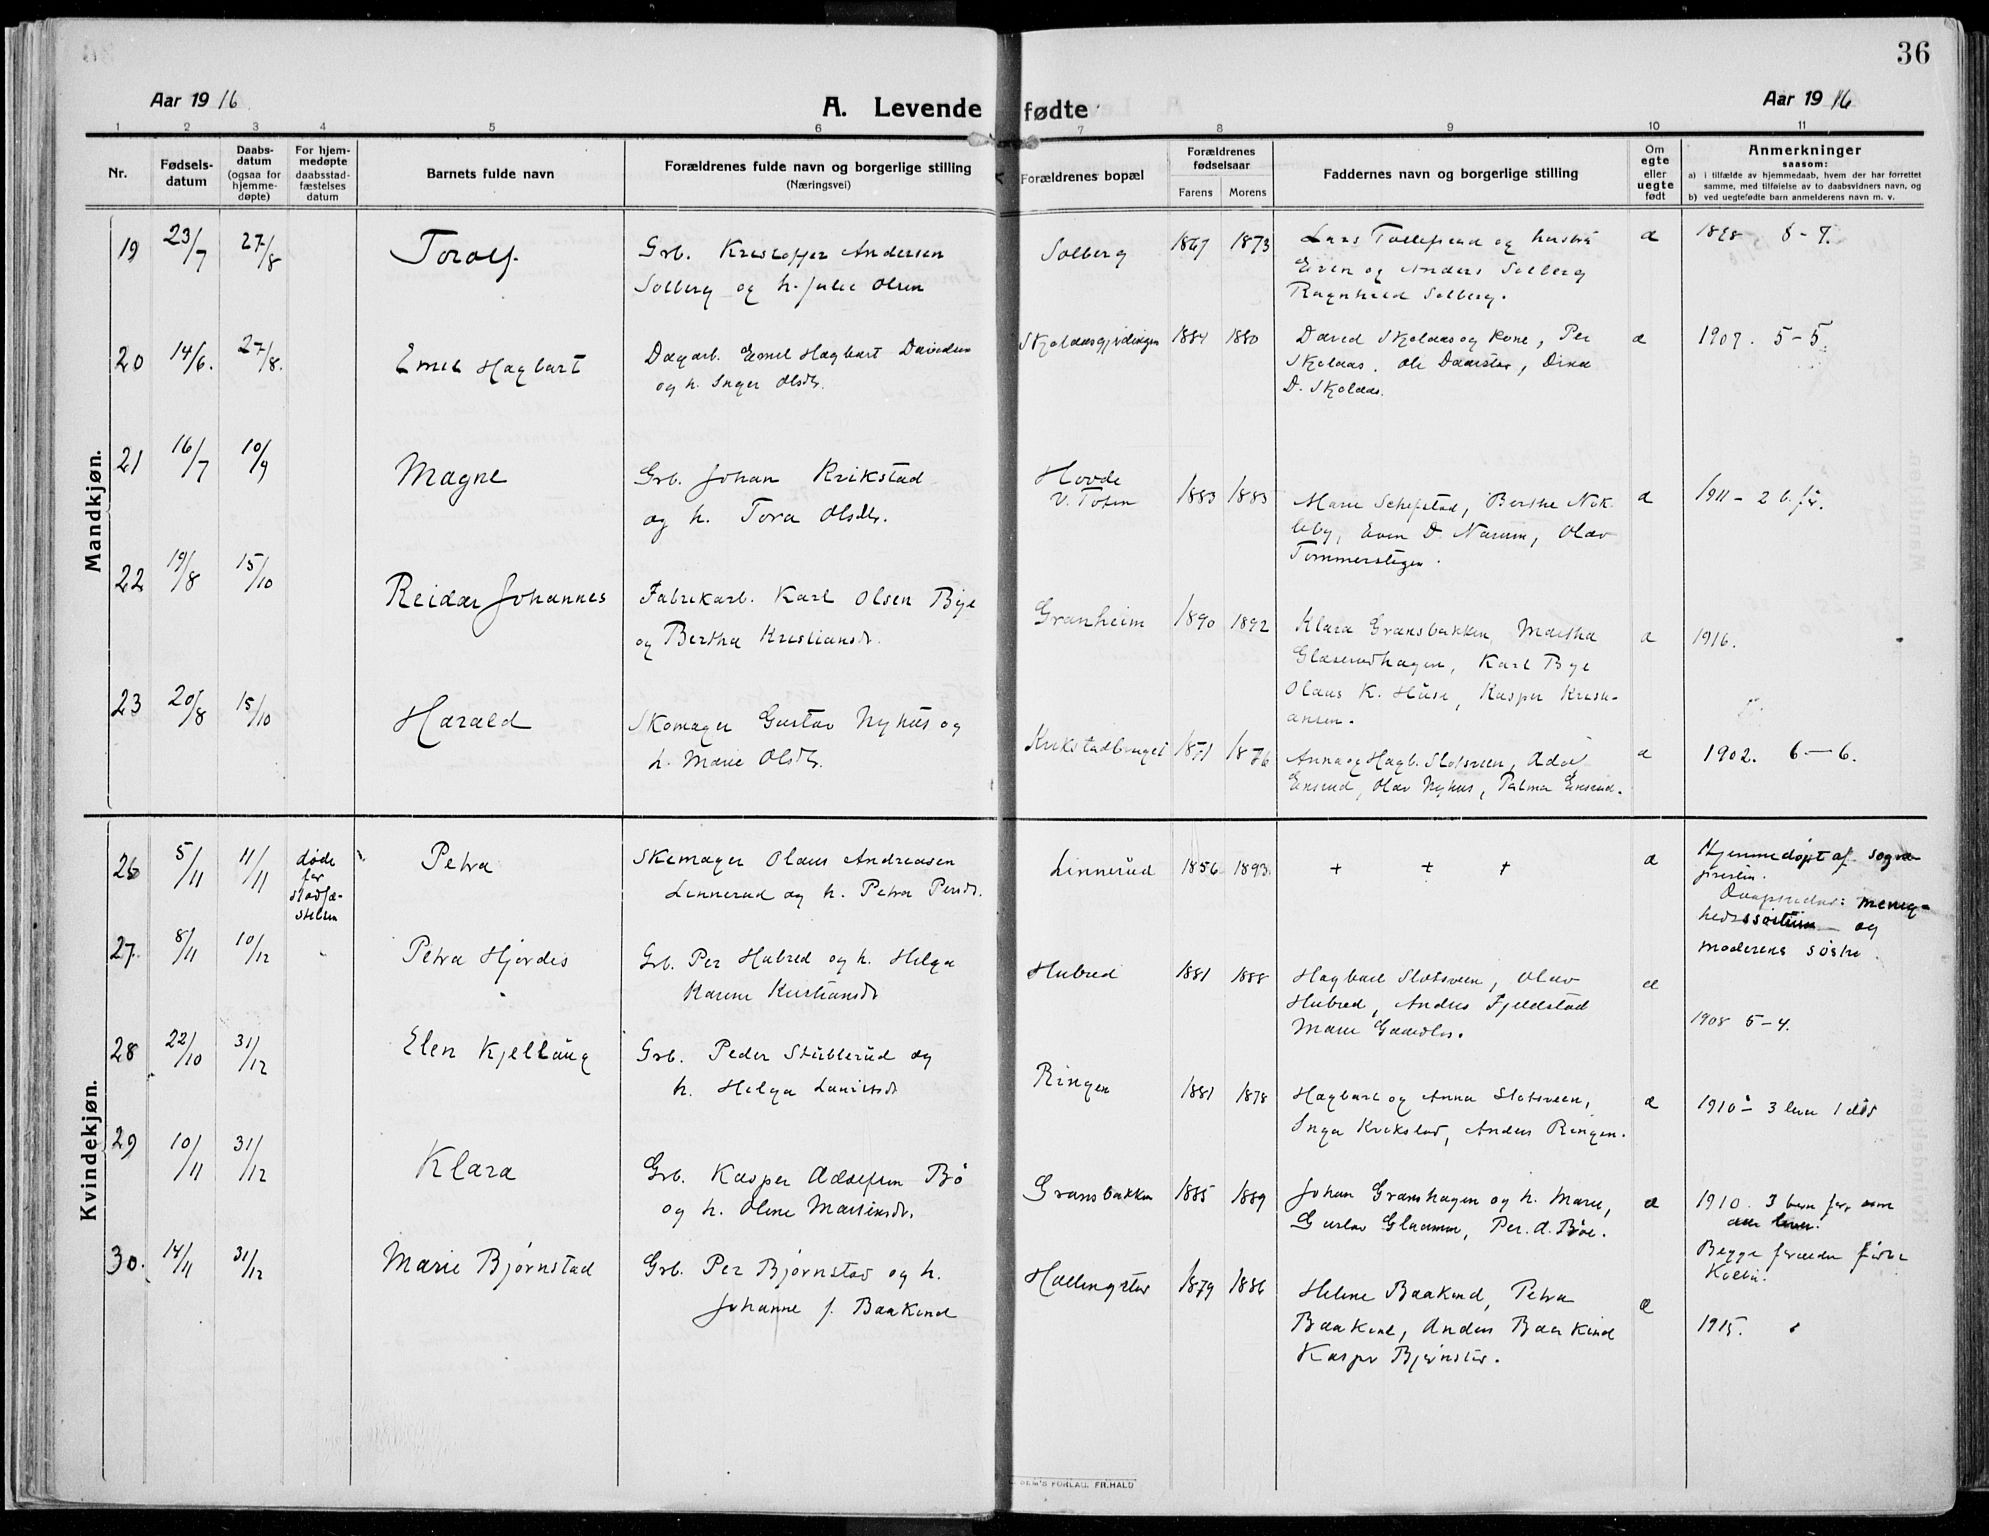 36
Aar 1916.
A. Levende fødte
Aar 1916
1 2 3 4 5 6 7 8 9 10 11
Nr.
Fødsels-
datum
Daabs-
datum
(ogsaa for
hjemme-
døpte)
For hjem-
medøpte
daabsstad-
fæstelses
datum
Barnets fulde navn
Forældrenes fulde navn og borgerlige stilling
(Næringsvei)
Forældrenes bopæl
Forældrenes
fødselsaar
Farens Morens
Faddernes navn og borgerlige stilling
Om
egte
eller
uegte
født
Anmerkninger
saasom:
a) i tilfælde av hjemmedaab, hvem der har forrettet
samme, med tilføielse av to daabsvidners navn, og
b) ved uegtefødte barn anmelderens navn m. v.
Mandkjøn.
19 23/7 27/8 Torolf Grb. Kristoffer Andersen
Solberg og h. Julie Olsen
Solberg 1867 1873 Lars Tollefsrud og hustru
Even og Anders Solberg
Ragnhild Solberg.
æ 1898 8-7.
20 14/6. 27/8. Emil Hagbart Dagarb. Emil Hagbart Davidsen
og h. Inger Olsdtr.
1884 1880 David Skjelaas og kone, Per
Skjelaas. Ole Daarstad, Dina
D. Skjelaas.
æ 1907. 5-5.
21 16/7 10/9 Magne Grb. Johan Krikstad
og h. Tora Olsdtr.
Hovde
V. Toten
1883 1883 Marie Schefstad, Berthe Nøk-
leby, Even D. Narum, Olav
Tømmerstigen.
æ 1911 - 2 b. før.
22 19/8 15/10 Reidar Johannes Fabrikarb. Karl Olsen Bye
og Bertha Kristiansdr.
Granheim 1890 1892 Klara Gransbakken, Martha
Glæserudhagen, Karl Bye
Olaus K. Huse, Kasper Kristi-
ansen.
æ 1916.
23 20/8 15/10 Harald Skomager Gustav Nyhus og
h. Marie Olsdtr.
Krikstadbruget 1871 1876 Anna og Hagb. Slotsveen, Adol
Ensrud, Olav Nyhus, Palma Ensrud.
æ 1902. 6-6.
Kvindekjøn.
26 5/11 11/11 døde
før
stadfæ-
stelsen
Petra Skomager Olaus Andreasen
Linnerud og h. Petra Persdr.
Linnerud 1856 1893. + + + æ Hjemmedøpt af sogne-
presten.
Daapsvidner: menig-
hedssøsteren og
moderens søster.
27. 8/11 10/12 Petra Hjørdis Grb. Per Hubred og h. Helga
Karine Kristiansdr
Hubred 1881 1888 Hagbart Slotsveen, Olav
Hubred, Anders Fjeldstad
Marie
æ 1908 5-4.
28 22/10 31/12 Elen Kjellaug Grb. Peder Stubberud og
h. Helga Lauritsdr
Ringen 1881 1878 Hagbart og Anna Slotsveen,
Inga Krikstad, Anders Ringen.
æ 1910 - 3 lever 1 død
29 10/11 31/12 Klara Grb. Kasper Adolfsen Bö
og h. Oline Martinsdr.
Gransbakken 1885 1889 Johan Granshagen og h. Marie,
Gustav Glaamen, Per. A. Böe.
æ 1910. 3 barn før som
alle lever.
30. 14/11 31/12 Marie Bjørnstad Grb. Per Bjørnstad og h.
Johanne f. Baakind
Hallingstad 1879 1886 Helene Baakind, Petra
Baakind, Anders Baakind
Kasper Bjørnstad.
æ Begge forældre født
Kolbu.
1915.
SEM'S FORLAG. FR.HALD